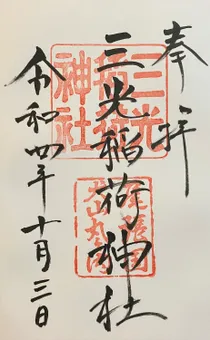 奉拝
三光稲荷神社
令和四年十月三日
三光
稲荷
神社